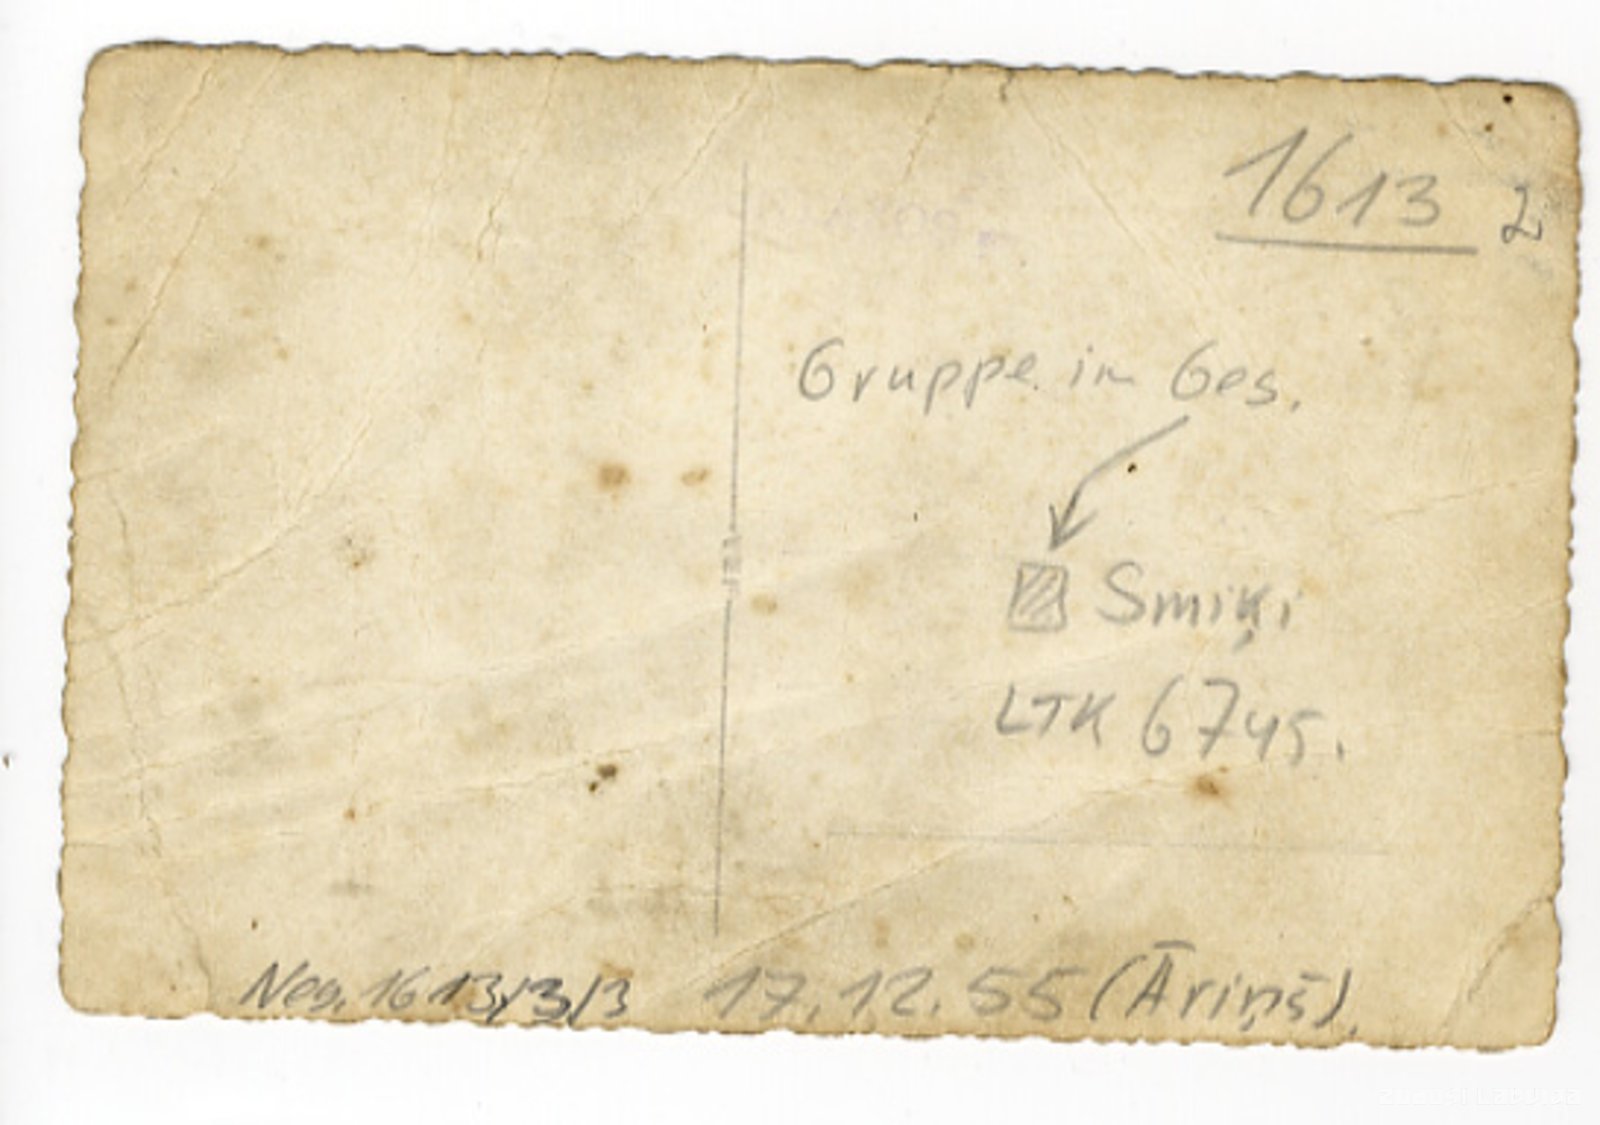 1613 2
Gruppe im Ges.
Smiķi
LTK 6745.
Neg. 1613/3/3 17.12.55 (Āriņš).